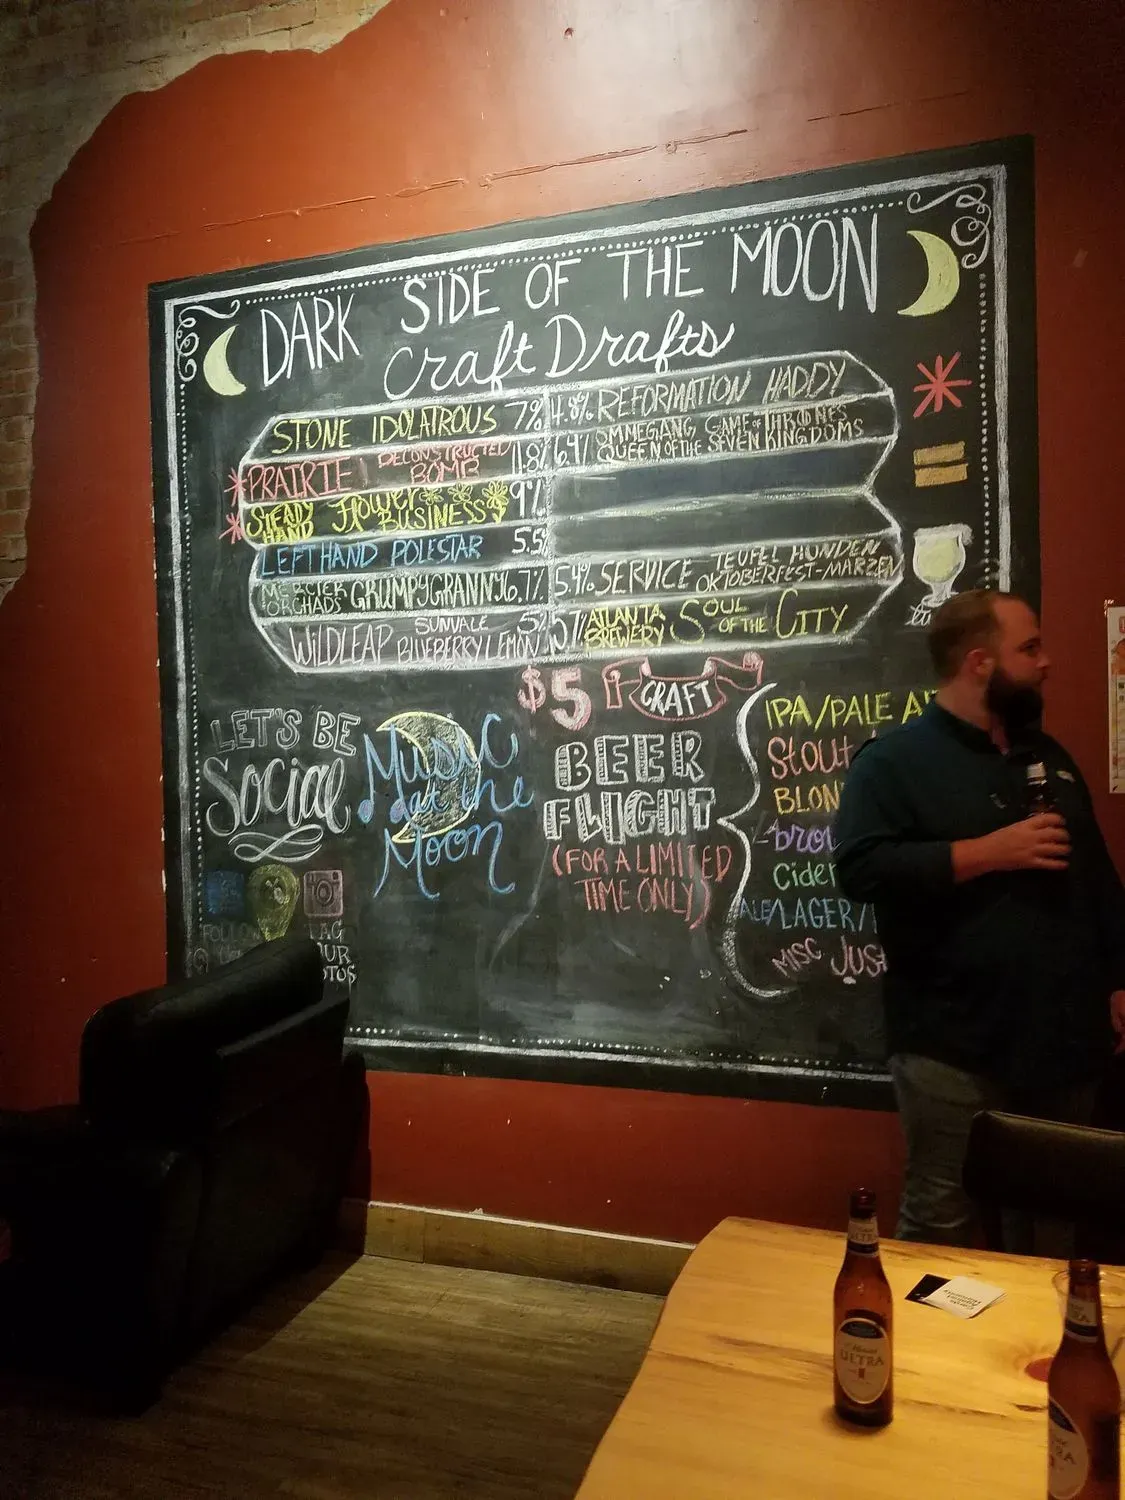 DARK SIDE OF THE MOON
Craft Drafts
STONE IDOLATROUS 7%
PRAIRIE DECONSTRUCTED BOMB 11.8%
STEADY HAND Flower BUSINESS 9%
LEFT HAND POLESTAR 5.5%
MERCIER ORCHADS GRUMPY GRANNY 6.7%
WILDLEAP SUNVALE BLUEBERRY LEMON 5%
4.8% REFORMATION HADDY
6.4% OMMEGANG, GAME OF THRONES
QUEEN OF THE SEVEN KINGDOMS
5.4% SERVICE TEUFEL HUNDEN
OKTOBERFEST-MARZEN
5.7% ATLANTA BREWERY SOUL OF THE CITY
LET'S BE
Social
Music
at the
Moon
$5 CRAFT
BEER
FLIGHT
(FOR A LIMITED
TIME ONLY)
IPA/PALE
Stout
Cider
ALE/LAGER/
MISC JUST
ULTRA